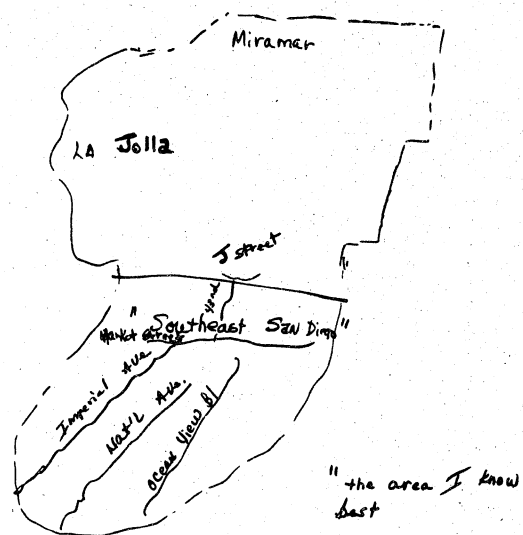 Miramar
LA Jolla
J street
43nd
"Southeast San Diego"
Market Street
Imperial Ave
Nat'l Ave.
Ocean View Bl
" the area I know
best